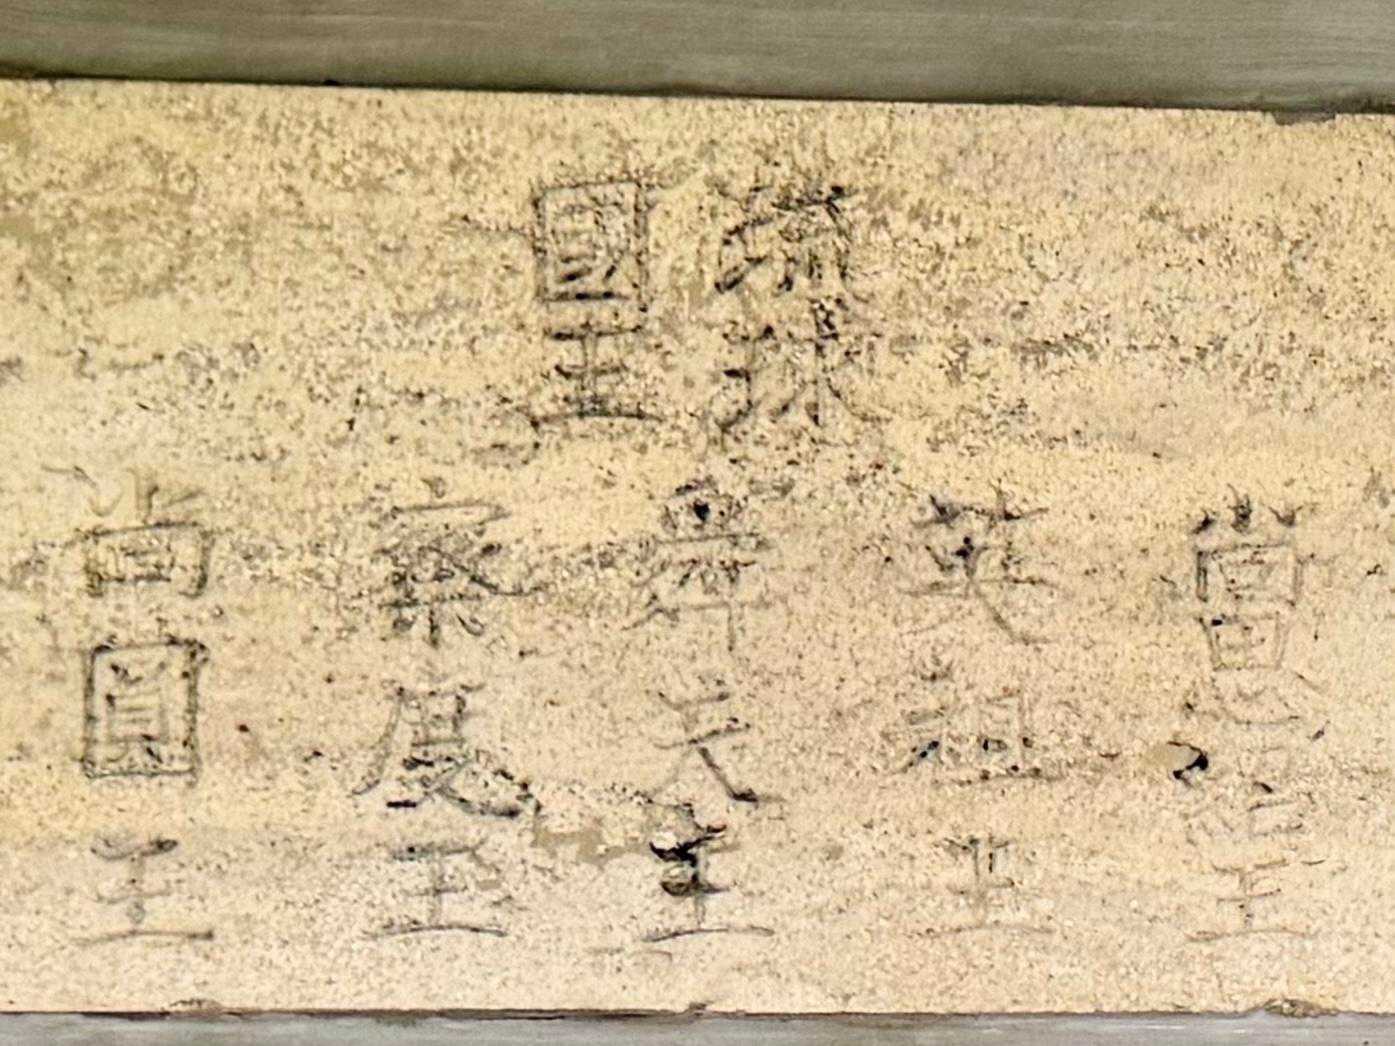 琉球
國王
尚思紹王
英祖王
舜天王
察度王
尚圓王